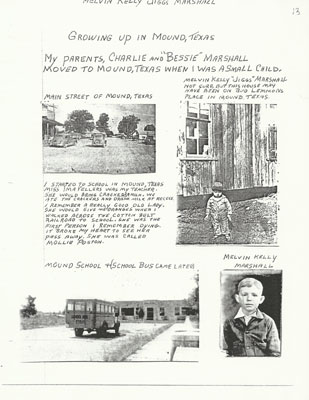 MELVIN KELLY "JIGGS" MARSHALL
13
GROWING UP IN MOUND, TEXAS
MY PARENTS, CHARLIE AND "BESSIE" MARSHALL
MOVED TO MOUND, TEXAS WHEN I WAS A SMALL CHILD.
MELVIN KELLY "JIGGS" MARSHALL
NOT SURE BUT THIS HOUSE MAY
HAVE BEEN ON BUD LEMMONS
PLACE IN MOUND TEXAS
MAIN STREET OF MOUND, TEXAS
I STARTED TO SCHOOL IN MOUND, TEXAS
MISS IMA FELLERS WAS MY TEACHER.
SHE WOULD BRING CRACKERS &
WE
ATE THE CRACKERS AND DRANK MILK AT RECESS.
I REMEMBER A REALLY GOOD OLD LADY.
SHE WOULD GIVE ME ORANGES WHEN I
WALKED ACROSS THE COTTON BELT
RAILROAD TO SCHOOL. SHE WAS THE
FIRST PERSON I REMEMBER DYING.
IT BROKE MY HEART TO SEE HER
PASS AWAY. SHE WAS CALLED
MOLLIE POSTON.
MOUND SCHOOL & SCHOOL BUS CAME LATER
MELVIN KELLY
MARSHALL